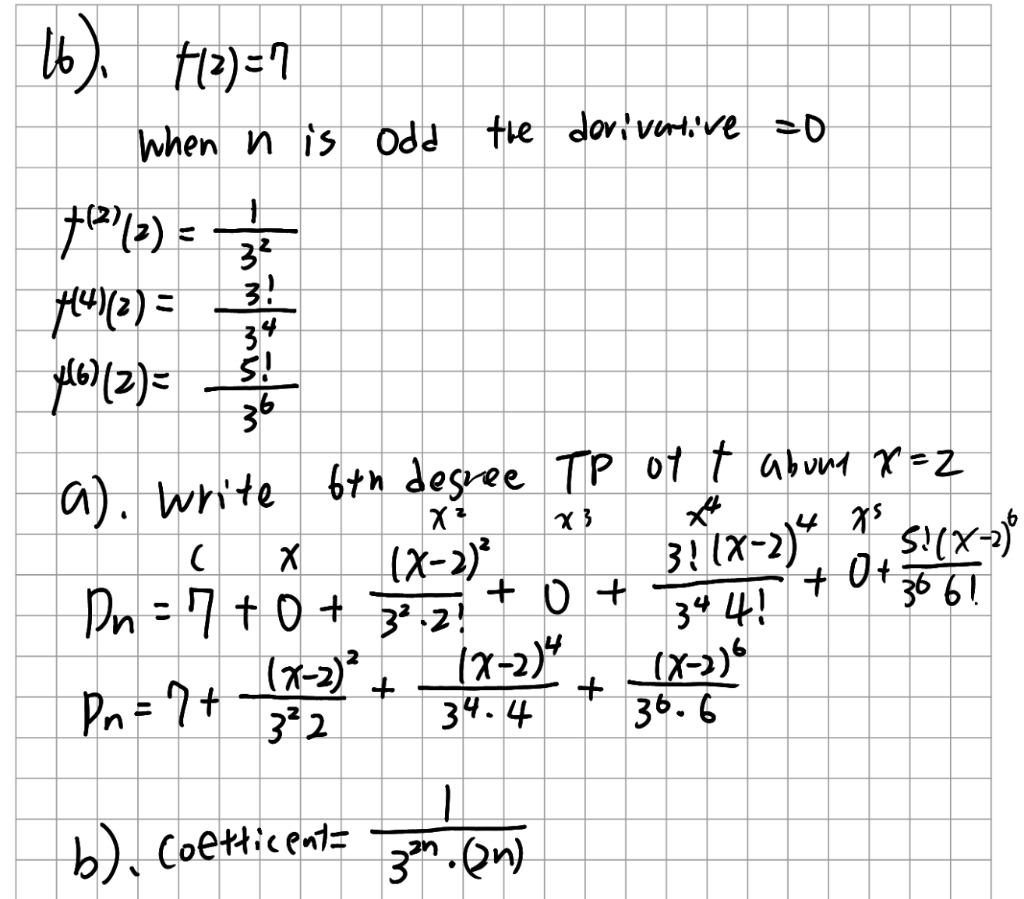 (6). f(2)=7
when n is odd the derivative =0
f^(2)(2) = 1/3^2
f^(4)(2) = 3!/3^4
f^(6)(2) = 5!/3^6
a). write 6th degree TP of f about x=2
C x x^2 x^3 x^4 x^5
Pn = 7 + 0 + (x-2)^2/(3^2·2!) + 0 + 3!(x-2)^4/(3^4 4!) + 0 + 5!(x-2)^6/(3^6 6!)
Pn = 7 + (x-2)^2/(3^2 2) + (x-2)^4/(3^4·4) + (x-2)^6/(3^6·6)
b). coefficent= 1/(3^2n·(2n))